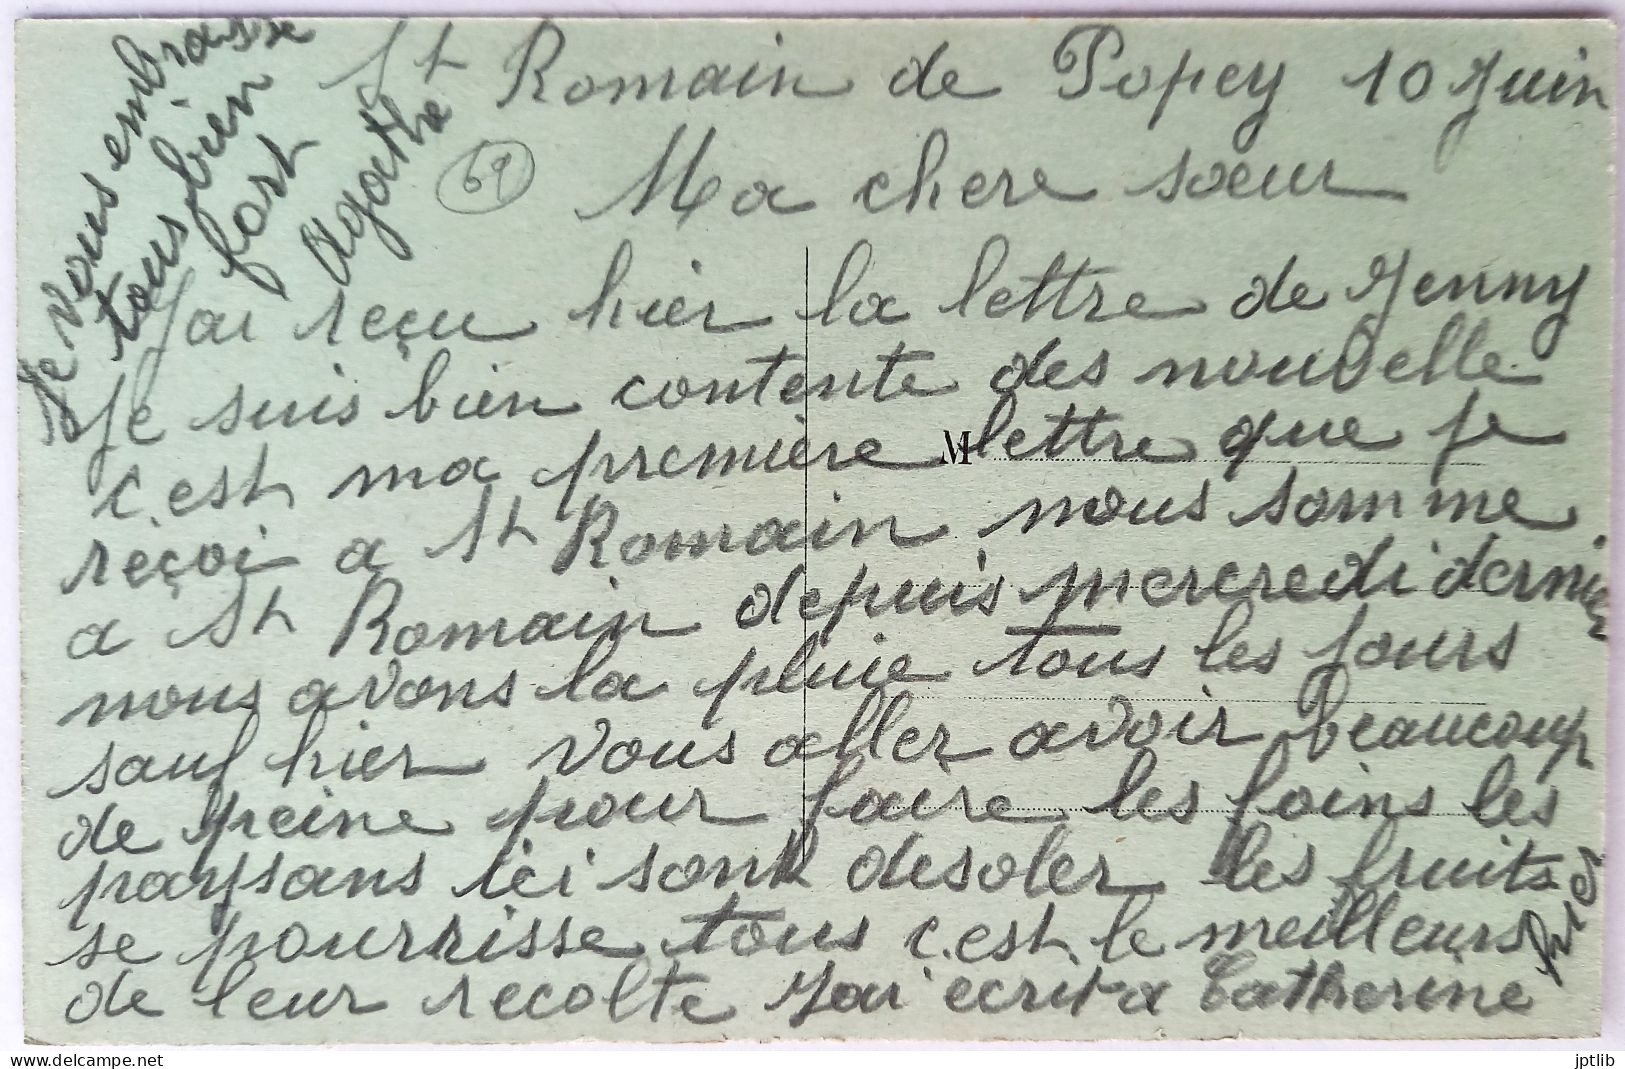 St Romain de Popey 10 Juin
69
Ma chere sœur
J'ai reçu hier la lettre de Jenny
Je suis bien contente des nouvelle
c'est ma première lettre que je
M
reçoi a St Romain nous somme
a St Romain depuis mercredi dernier
nous avons la pluie tous les jours
sauf hier vous aller avoir beaucoup
de peine pour faire les foins les
paysans ici sont desoler les fruits
se pourrisse tous c'est le meilleurs
de leur recolte J'ai ecrit a Catherine
hier
Je vous embrasse
tous bien
fort
Agathe
Delcampe.net
jptlib